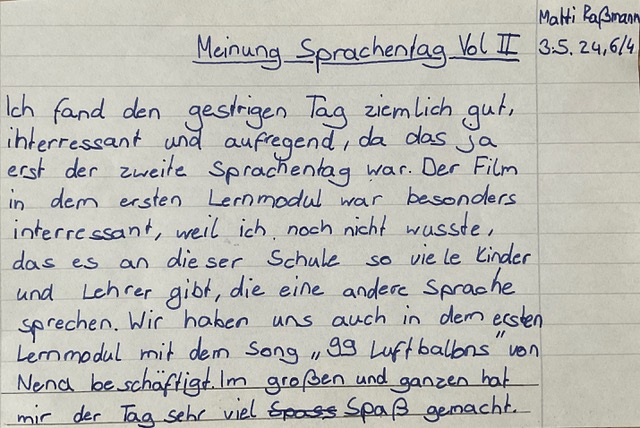 Matti Raßmann
Meinung Sprachentag Vol II 3.5.24, 6/4
Ich fand den gestrigen Tag ziemlich gut,
interressant und aufregend, da das ja
erst der zweite Sprachentag war. Der Film
in dem ersten Lernmodul war besonders
interressant, weil ich noch nicht wusste,
das es an dieser Schule so viele Kinder
und Lehrer gibt, die eine andere Sprache
sprechen. Wir haben uns auch in dem ersten
Lernmodul mit dem Song „99 Luftballons" von
Nena beschäftigt. Im großen und ganzen hat
mir der Tag sehr viel ~~Spass~~ Spaß gemacht.